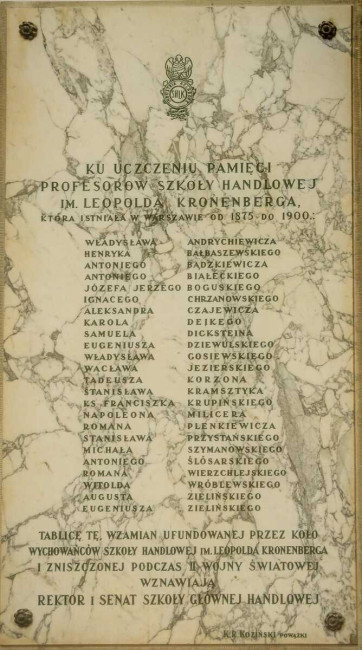 SHLK
KU UCZCZENIU PAMIĘCI
PROFESORÓW SZKOŁY HANDLOWEJ
IM. LEOPOLDA KRONENBERGA,
KTÓRA ISTNIAŁA W WARSZAWIE OD 1875 DO 1900.:
WŁADYSŁAWA ANDRYCHIEWICZA
HENRYKA BAŁBASZEWSKIEGO
ANTONIEGO BĄDZKIEWICZA
ANTONIEGO BIAŁECKIEGO
JÓZEFA JERZEGO BOGUSKIEGO
IGNACEGO CHRZANOWSKIEGO
ALEKSANDRA CZAJEWICZA
KAROLA DEJKEGO
SAMUELA DICKSTEINA
EUGENIUSZA DZIEWULSKIEGO
WŁADYSŁAWA GOSIEWSKIEGO
WACŁAWA JEZIERSKIEGO
TADEUSZA KORZONA
STANISŁAWA KRAMSZTYKA
KS. FRANCISZKA KRUPIŃSKIEGO
NAPOLEONA MILICERA
ROMANA PLENKIEWICZA
STANISŁAWA PRZYSTAŃSKIEGO
MICHAŁA SZYMANOWSKIEGO
ANTONIEGO ŚLÓSARSKIEGO
ROMANA WIERZCHLEJSKIEGO
WITOLDA WRÓBLEWSKIEGO
AUGUSTA ZIELIŃSKIEGO
EUGENIUSZA ZIELIŃSKIEGO
TABLICĘ TĘ, WZAMIAN UFUNDOWANEJ PRZEZ KOŁO
WYCHOWAŃCÓW SZKOŁY HANDLOWEJ IM. LEOPOLDA KRONENBERGA
I ZNISZCZONEJ PODCZAS II WOJNY ŚWIATOWEJ
WZNAWIAJĄ
REKTOR I SENAT SZKOŁY GŁÓWNEJ HANDLOWEJ
KOZIŃSKI POWĄZKI